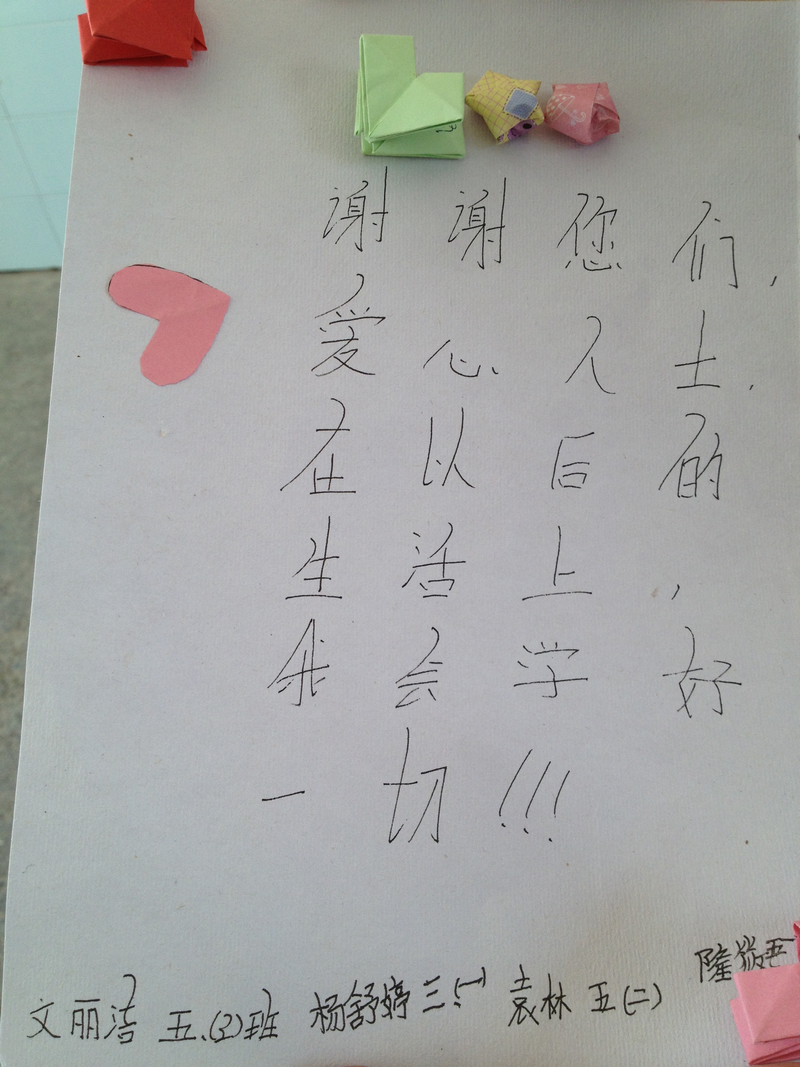 谢谢您们,
爱心人士.
在以后的
生活上,
我会学好
一切!!!
文丽洁 五.(2)班 杨舒婷 三.(一) 袁林 五(二)
隆